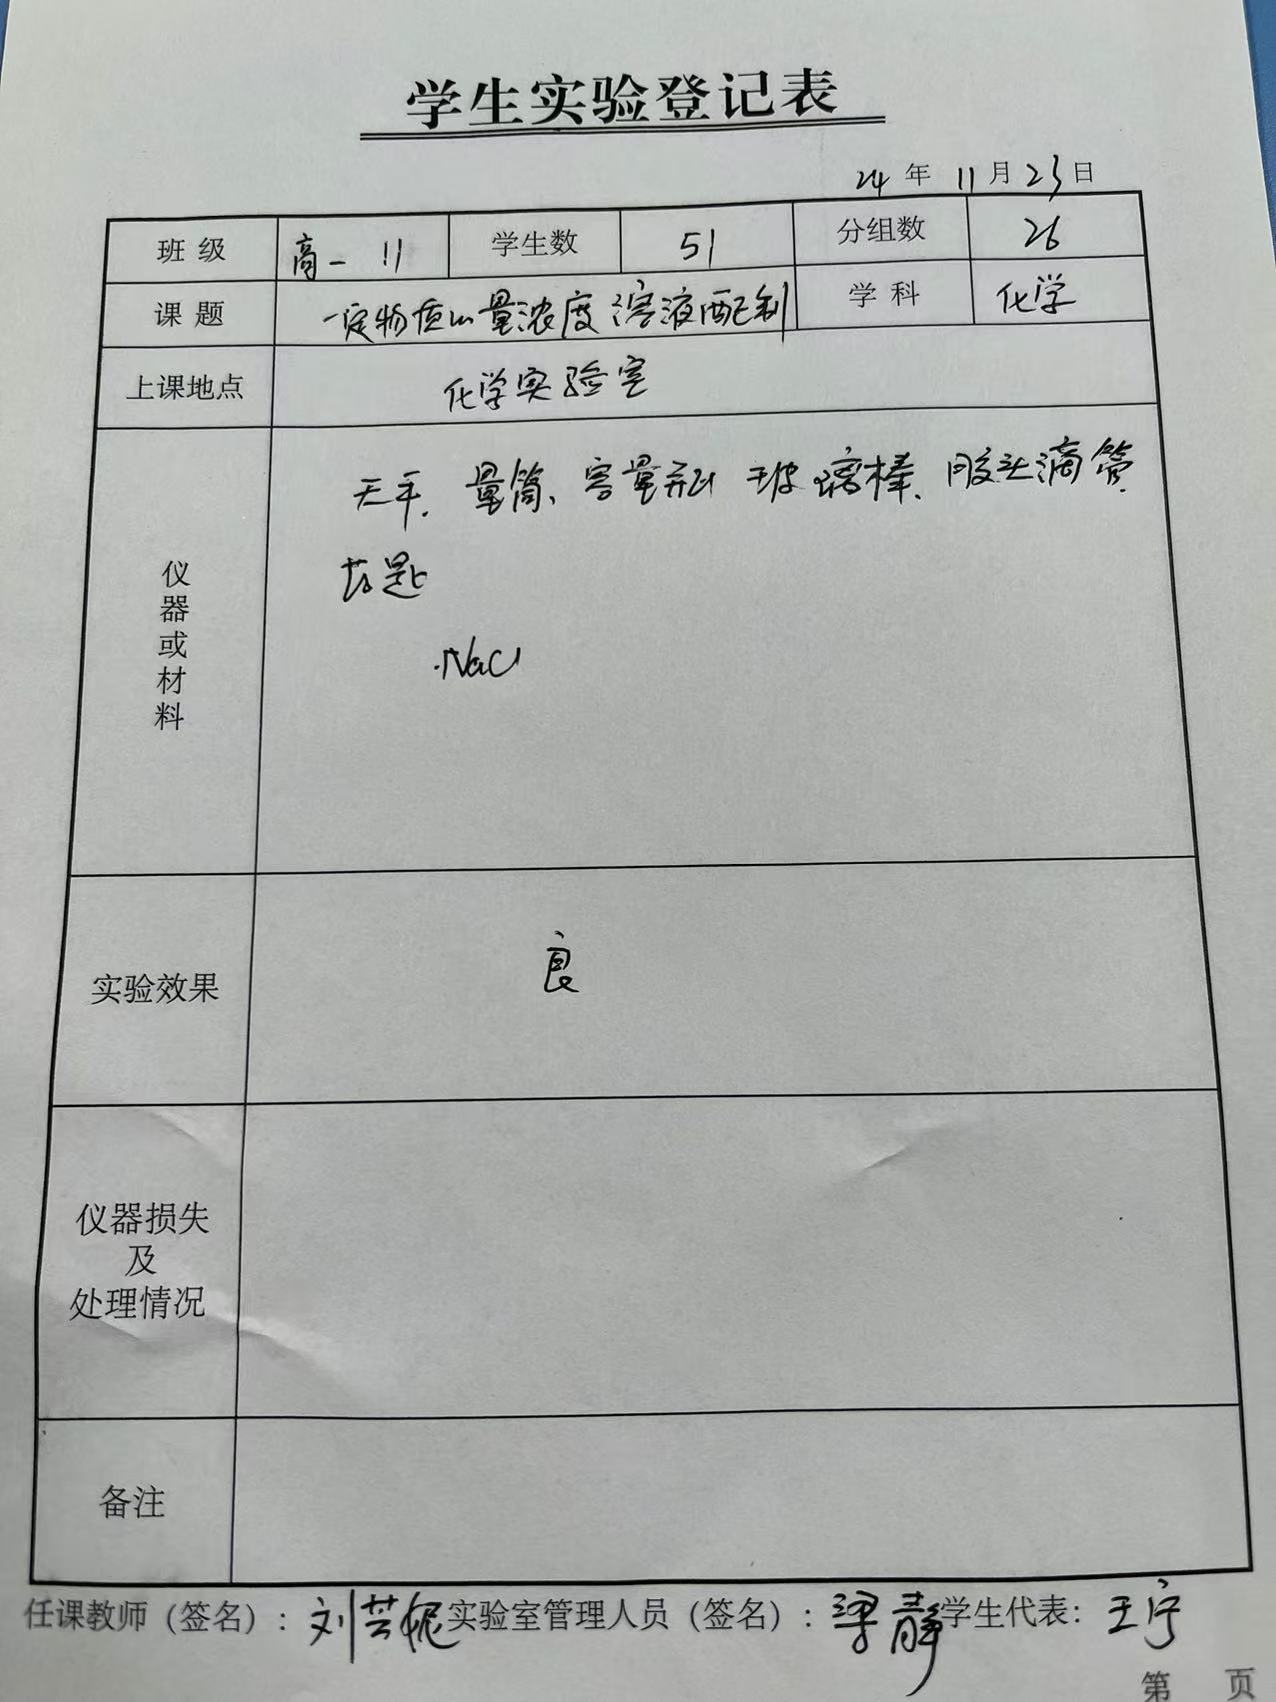 学生实验登记表
24 年 11 月 23 日
班级 高一 11 学生数 51 分组数 26
课题 一定物质的量浓度溶液配制 学科 化学
上课地点 化学实验室
仪器或材料 天平、量筒、容量瓶 玻璃棒、胶头滴管、
药匙
NaCl
实验效果 良
仪器损失
及
处理情况
备注
任课教师（签名）：刘芸妮 实验室管理人员（签名）：梁静 学生代表：王宁
第 页